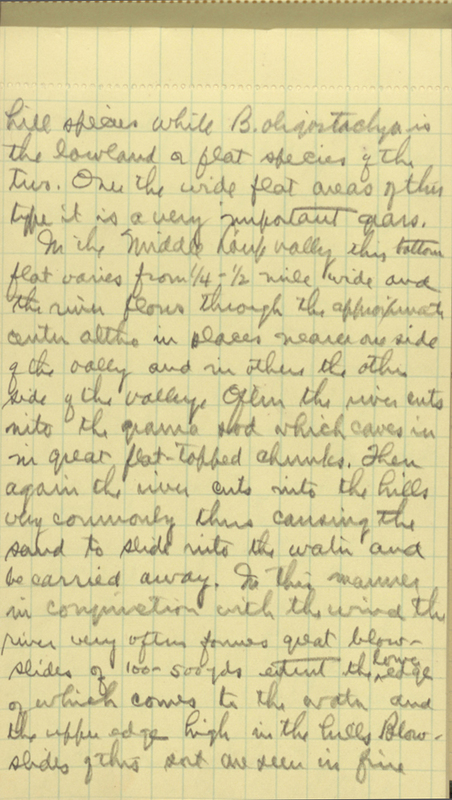 hill species while B. oligostachya is
the lowland or flat species of the
two. Over the wide flat areas of this
type it is a very important grass.
In the Middle Loup valley this bottom
flat varies from 1/4 - 1/2 mile wide and
the river flows through the approximate
center altho in places nearer one side
of the valley and in others the other
side of the valley. Often the river cuts
into the grama sod which caves in
in great flat-topped chunks. Then
again the river cuts into the hills
very commonly thus causing the
sand to slide into the water and
be carried away. In this manner
in conjunction with the wind the
river very often formes great blow-
slides of 100-500 yds extent the lower edge
of which comes to the water and
the upper edge high in the hills Blow-
slides of this sort are seen in fine